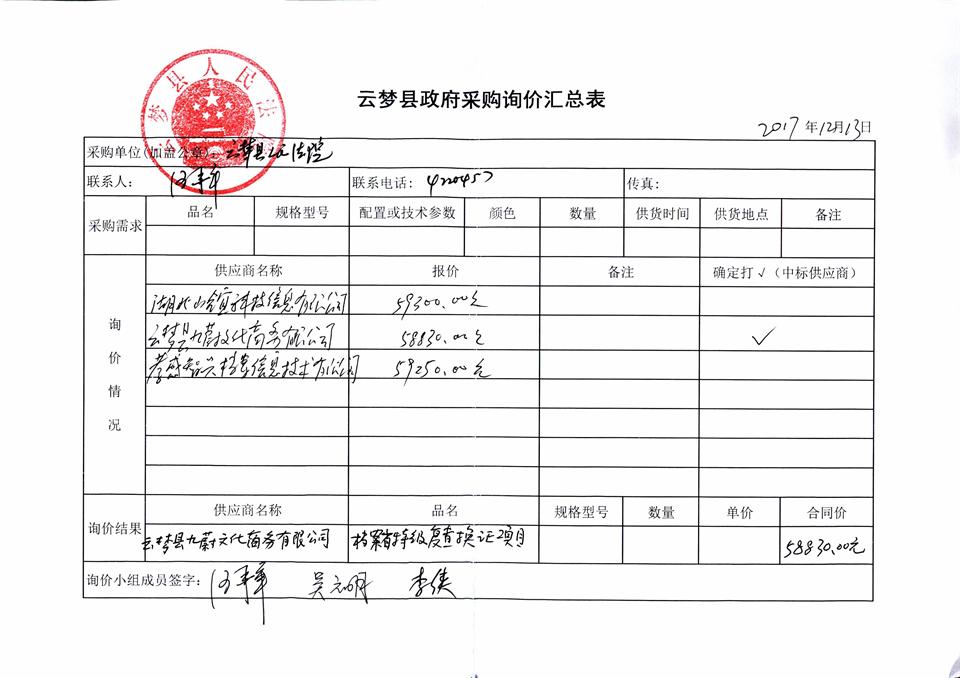 云梦县政府采购询价汇总表
2017年12月13日
采购单位(加盖公章): 云梦县人民法院
云梦县人民法
联系人:
联系电话: 4220457
传真:
采购需求
品名 规格型号 配置或技术参数 颜色 数量 供货时间 供货地点 备注
询价情况
供应商名称 报价 备注 确定打√（中标供应商）
科技信息有限公司 59300.00元
云梦县九蔚文化商务有限公司 58830.00元 ✓
孝感智兴档案信息技术有限公司 59250.00元
询价结果
供应商名称 品名 规格型号 数量 单价 合同价
云梦县九蔚文化商务有限公司 档案省特级复查换证项目 58830.00元
询价小组成员签字: 吴元明 李侠